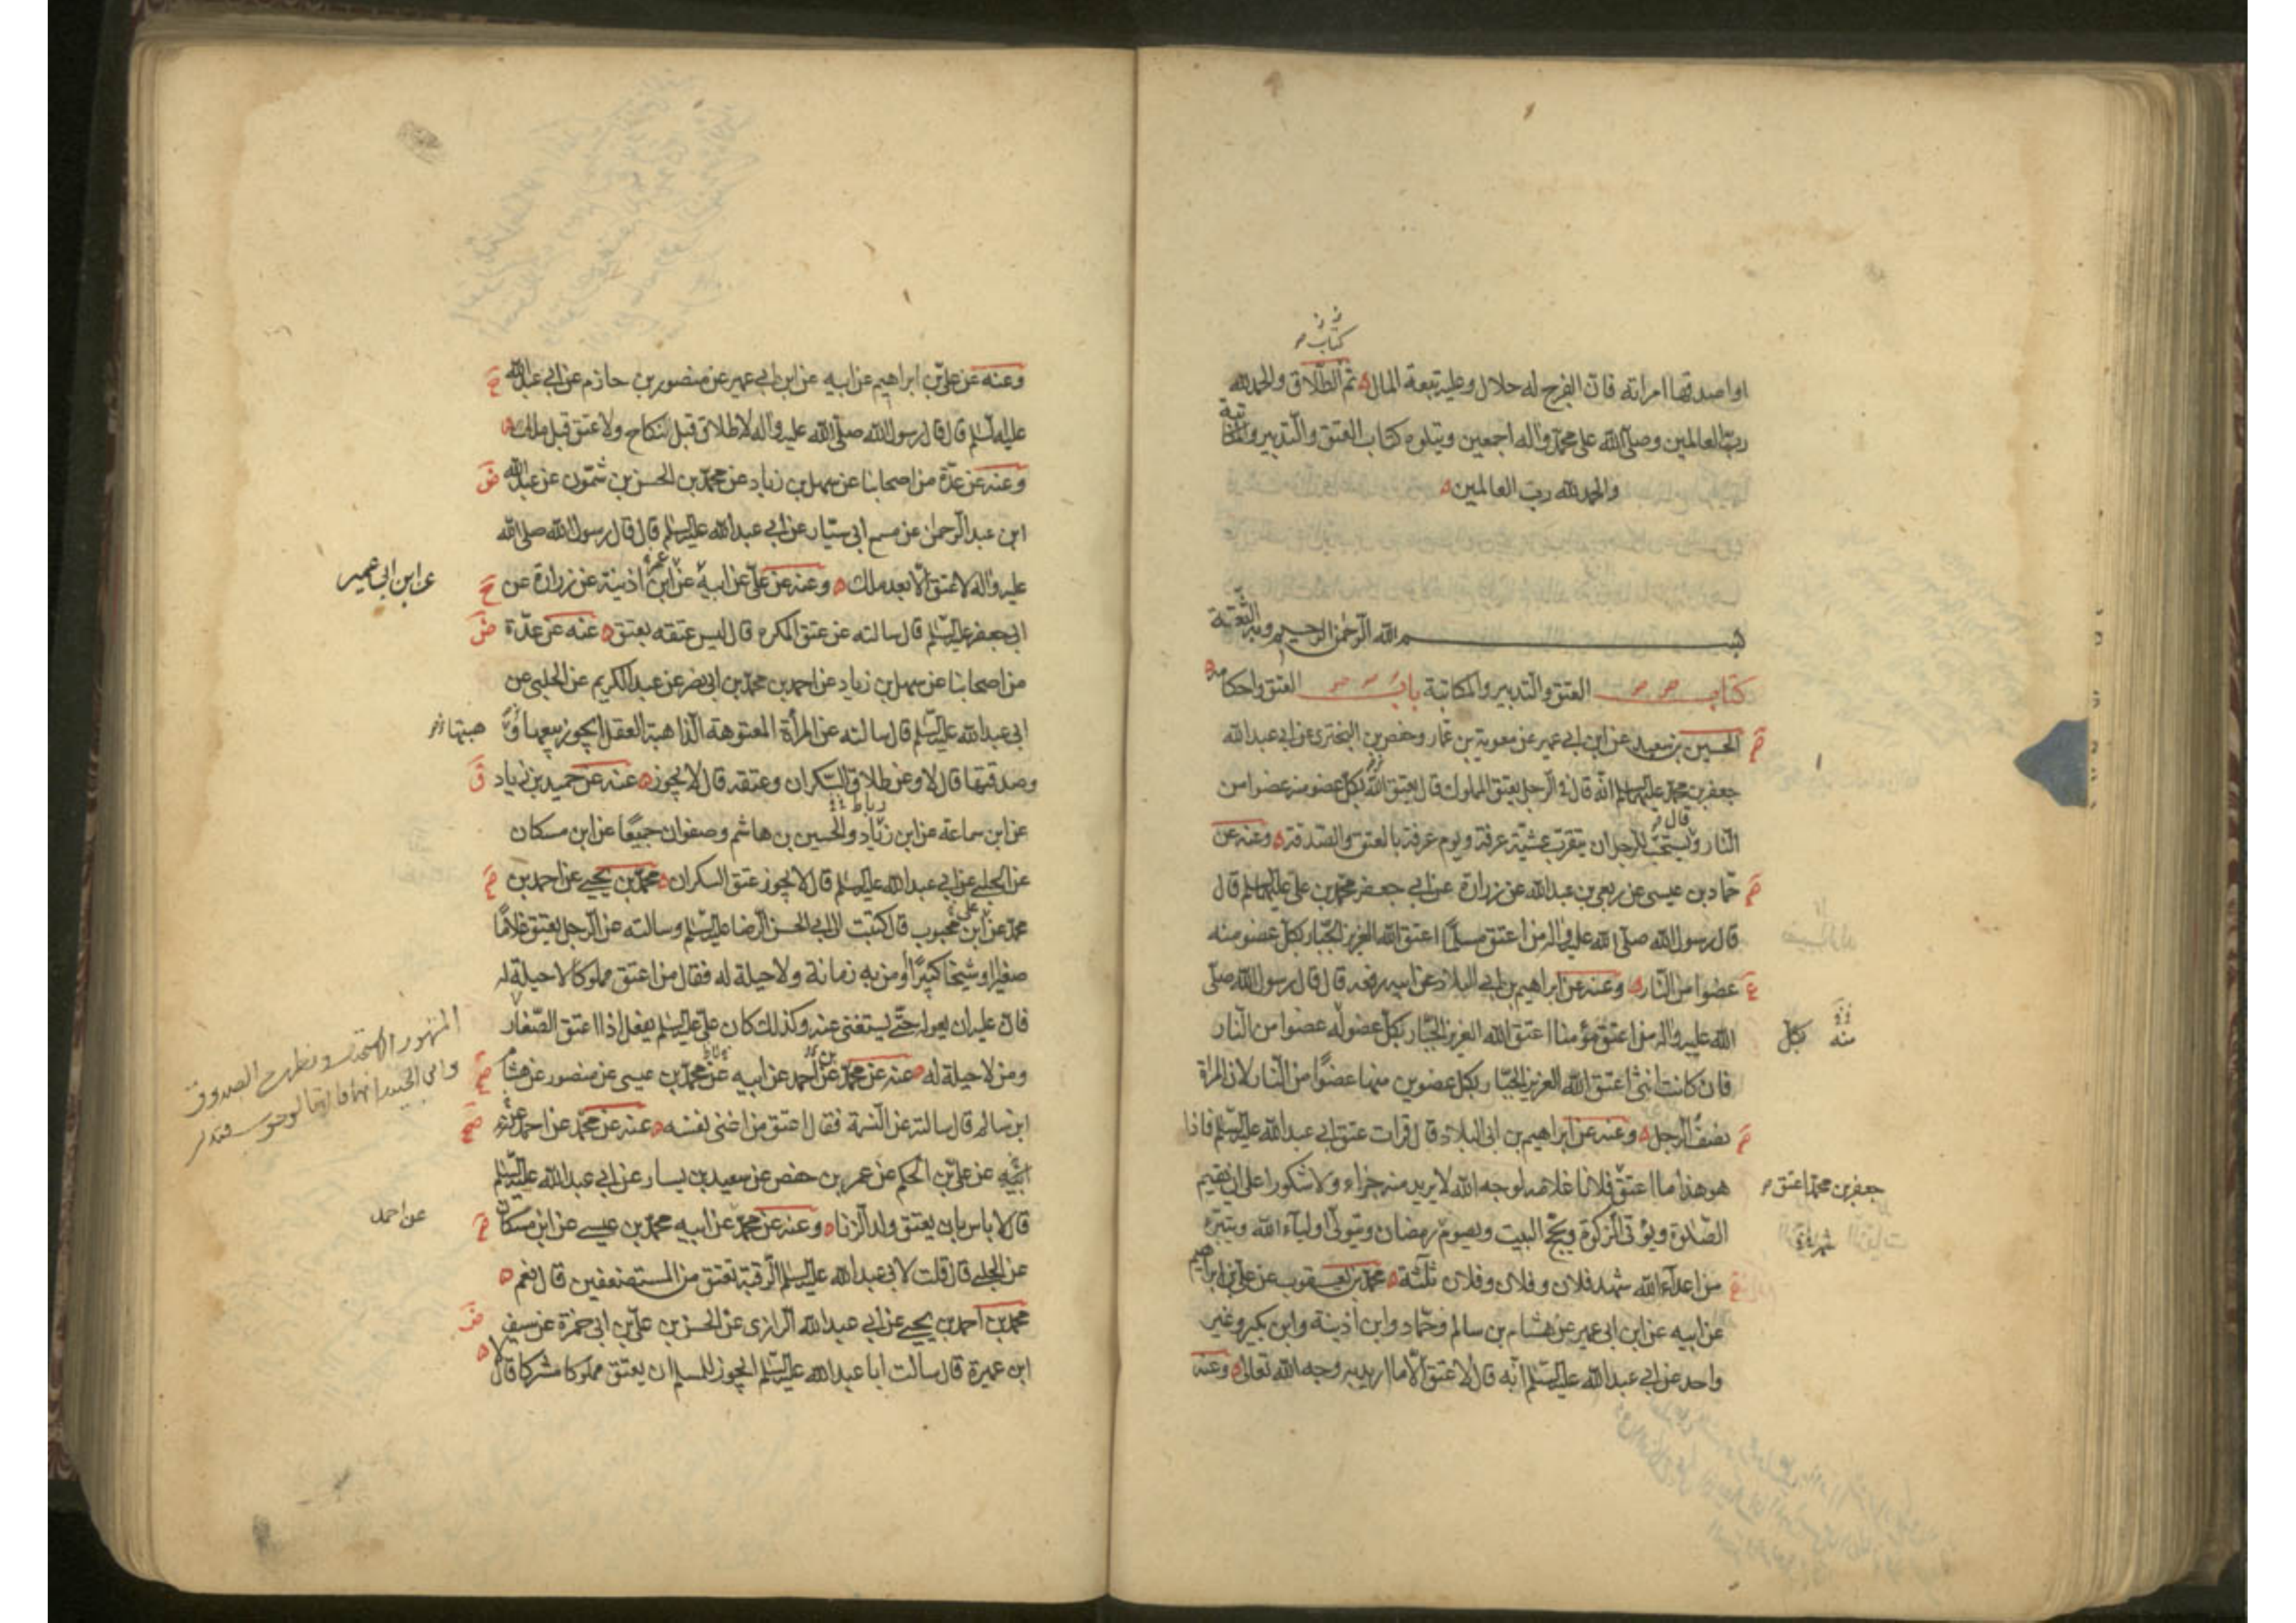 كتاب
او اصدقها امراته فان الفرج له حلال وعليه تبعة المال تم الطلاق والحمد لله
رب العالمين وصلى الله على محمد واله اجمعين ويتلوه كتاب العتق والتدبير والمكاتبة
والحمد لله رب العالمين
بسم الله الرحمن الرحيم وبه الثقة
كتاب العتق والتدبير والمكاتبة باب العتق واحكامه
الحسين بن سعيد عن ابن ابي عمير عن معوية بن عمار وحفص بن البختري عن ابي عبد الله
جعفر بن محمد عليهما السلم انه قال في الرجل يعتق المملوك قال يعتق الله بكل عضو منه عضوا من
النار قال ويستحب للرجل ان يتقرب عشية عرفة ويوم عرفة بالعتق والصدقة وعنه عن
حماد بن عيسى عن ربعي بن عبد الله عن زرارة عن ابي جعفر محمد بن علي عليهما السلم قال
قال رسول الله صلى الله عليه واله من اعتق مسلما اعتق الله العزيز الجبار بكل عضو منه
عضوا من النار وعنه عن ابراهيم بن ابي البلاد عن ابيه رفعه قال قال رسول الله صلى
الله عليه واله من اعتق مؤمنا اعتق الله العزيز الجبار بكل عضو له عضوا من النار
منه بكل
فان كانت انثى اعتق الله العزيز الجبار بكل عضوين منها عضوا من النار لان المراة
نصف الرجل وعنه عن ابراهيم بن ابي البلاد قال قرات عتق ابي عبد الله عليه السلم فاذا
هو هذا ما اعتق فلانا غلامه لوجه الله لا يريد منه جزاء ولا شكورا على ان يقيم
جعفر بن محمد اعتق
الصلوة ويؤتي الزكوة ويحج البيت ويصوم رمضان ويتولى اولياء الله ويتبرء
شهر
من اعداء الله شهد فلان وفلان وفلان ثلثة محمد بن يعقوب عن علي بن ابراهيم
عن ابيه عن ابن ابي عمير عن هشام بن سالم وحماد وابن اذينة وابن بكير وغير
واحد عن ابي عبد الله عليه السلم انه قال لا عتق الا ما اريد به وجه الله تعالى وعنه
وعنه عن علي بن ابراهيم عن ابيه عن ابن ابي عمير عن منصور بن حازم عن ابي عبد الله
عليه السلم قال قال رسول الله صلى الله عليه واله لا طلاق قبل نكاح ولا عتق قبل ملك
وعنه عن عدة من اصحابنا عن سهل بن زياد عن محمد بن الحسن بن شمون عن عبد الله
ابن عبد الرحمن عن مسمع ابي سيار عن ابي عبد الله عليه السلم قال قال رسول الله صلى الله
عليه واله لا عتق الا بعد ملك وعنه عن علي عن ابيه عن ابن اذينة عن زرارة عن
عن ابن ابي عمير
ابي جعفر عليه السلم قال سالته عن عتق المكره قال ليس عتقه بعتق عنه عن عدة
من اصحابنا عن سهل بن زياد عن احمد بن محمد بن ابي نصر عن عبد الكريم عن الحلبي عن
ابي عبد الله عليه السلم قال سالته عن المرأة المعتوهة الذاهبة العقل ايجوز بيعها و
هبتها
وصدقتها قال لا وعن طلاق السكران وعتقه قال لا يجوز عنه عن حميد بن زياد
رباط
عن ابن سماعة عن ابن زياد والحسين بن هاشم وصفوان جميعا عن ابن مسكان
عن الحلبي عن ابي عبد الله عليه السلم قال لا يجوز عتق السكران محمد بن يحيى عن احمد بن
محمد عن ابن محبوب قال كتبت الى ابي الحسن الرضا عليه السلم وسالته عن الرجل يعتق غلاما
صغيرا او شيخا كبيرا او من به زمانة ولا حيلة له فقال من اعتق مملوكا لا حيلة له
فان عليه ان يعوله حتى يستغني عنه وكذلك كان علي عليه السلم يفعل اذا اعتق الصغار
ومن لا حيلة له عنه عن محمد عن احمد عن ابيه عن محمد بن عيسى عن منصور عن هشام
ابن سالم قال سالته عن النسمة فقال اعتق من اغنى نفسه عنه عن محمد عن احمد عن
ابيه عن علي بن الحكم عن عمر بن حفص عن سعيد بن يسار عن ابي عبد الله عليه السلم
قال لا باس بان يعتق ولد الزنا وعنه عن محمد عن ابيه محمد بن عيسى عن ابن مسكان
عن احمد
عن الحلبي قال قلت لابي عبد الله عليه السلم الرقبة تعتق من المستضعفين قال نعم
محمد بن احمد بن يحيى عن ابي عبد الله الرازي عن الحسن بن علي بن ابي حمزة عن سيف
ابن عميرة قال سالت ابا عبد الله عليه السلم ايجوز للمسلم ان يعتق مملوكا مشركا قال لا